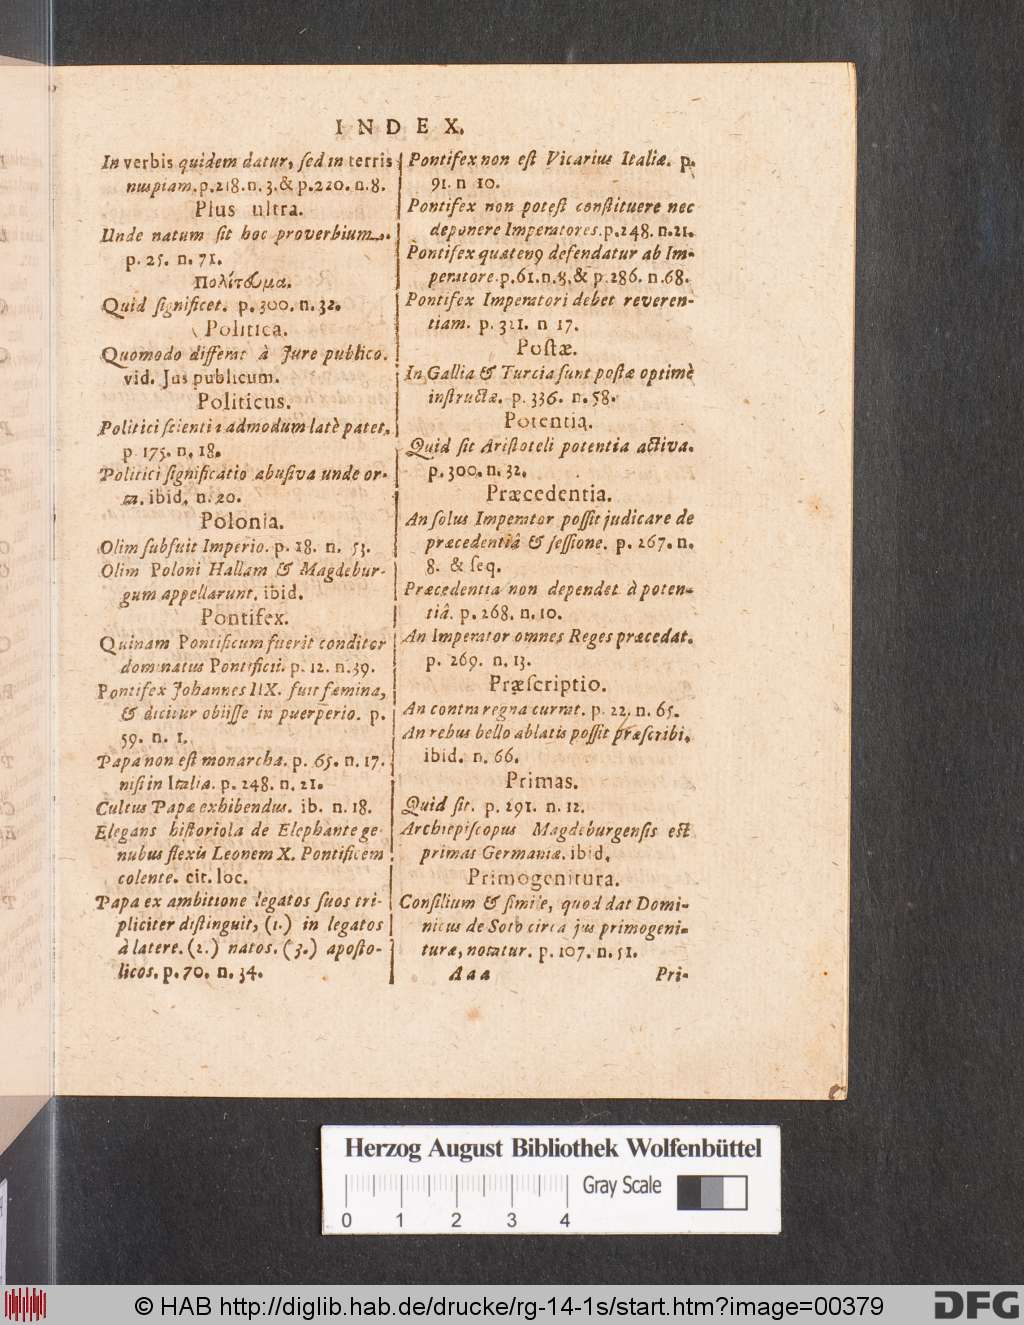 INDEX.
In verbis quidem datur, sed in terris
nuspiam. p. 218. n. 3. & p. 220. n. 8.
Plus ultra.
Unde natum sit hoc proverbium.
p. 25. n. 71.
Πολίτευμα.
Quid significet. p. 300. n. 32.
Politica.
Quomodo differat à Jure publico.
vid. Jus publicum.
Politicus.
Politici scientia admodum latè patet.
p. 175. n. 18.
Politici significatio abusiva unde or-
ta. ibid. n. 20.
Polonia.
Olim subfuit Imperio. p. 18. n. 53.
Olim Poloni Hallam & Magdebur-
gum appellarunt. ibid.
Pontifex.
Quinam Pontificum fuerit conditor
dominatus Pontificii. p. 12. n. 39.
Pontifex Johannes IIX. fuit fæmina,
& dicitur obiisse in puerperio. p.
59. n. 1.
Papa non est monarcha. p. 65. n. 17.
nisi in Italia. p. 248. n. 21.
Cultus Papæ exhibendus. ib. n. 18.
Elegans historiola de Elephante ge-
nubus flexis Leonem X. Pontificem
colente. cit. loc.
Papa ex ambitione legatos suos tri-
pliciter distinguit, (1.) in legatos
à latere. (2.) natos. (3.) aposto-
licos. p. 70. n. 34.
Pontifex non est Vicarius Italiæ. p.
91. n 10.
Pontifex non potest constituere nec
deponere Imperatores. p. 248. n. 21.
Pontifex quatenꝰ defendatur ab Im-
peratore. p. 61. n. 8. & p. 286. n. 68.
Pontifex Imperatori debet reveren-
tiam. p. 321. n 17.
Postæ.
In Gallia & Turcia sunt postæ optimè
instructæ. p. 336. n. 58.
Potentia.
Quid sit Aristoteli potentia activa.
p. 300. n. 32.
Præcedentia.
An solus Imperator possit judicare de
præcedentiâ & sessione. p. 267. n.
8. & seq.
Præcedentia non dependet à poten-
tiâ. p. 268. n. 10.
An Imperator omnes Reges præcedat.
p. 269. n. 13.
Præscriptio.
An contra regna currat. p. 22. n. 65.
An rebus bello ablatis possit præscribi.
ibid. n. 66.
Primas.
Quid sit. p. 291. n. 12.
Archiepiscopus Magdeburgensis est
primas Germaniæ. ibid.
Primogenitura.
Consilium & simile, quod dat Domi-
nicus de Soto circa jus primogeni-
turæ, notatur. p. 107. n. 51.
Aaa Pri-
Herzog August Bibliothek Wolfenbüttel
Gray Scale
0 1 2 3 4
© HAB http://diglib.hab.de/drucke/rg-14-1s/start.htm?image=00379
DFG